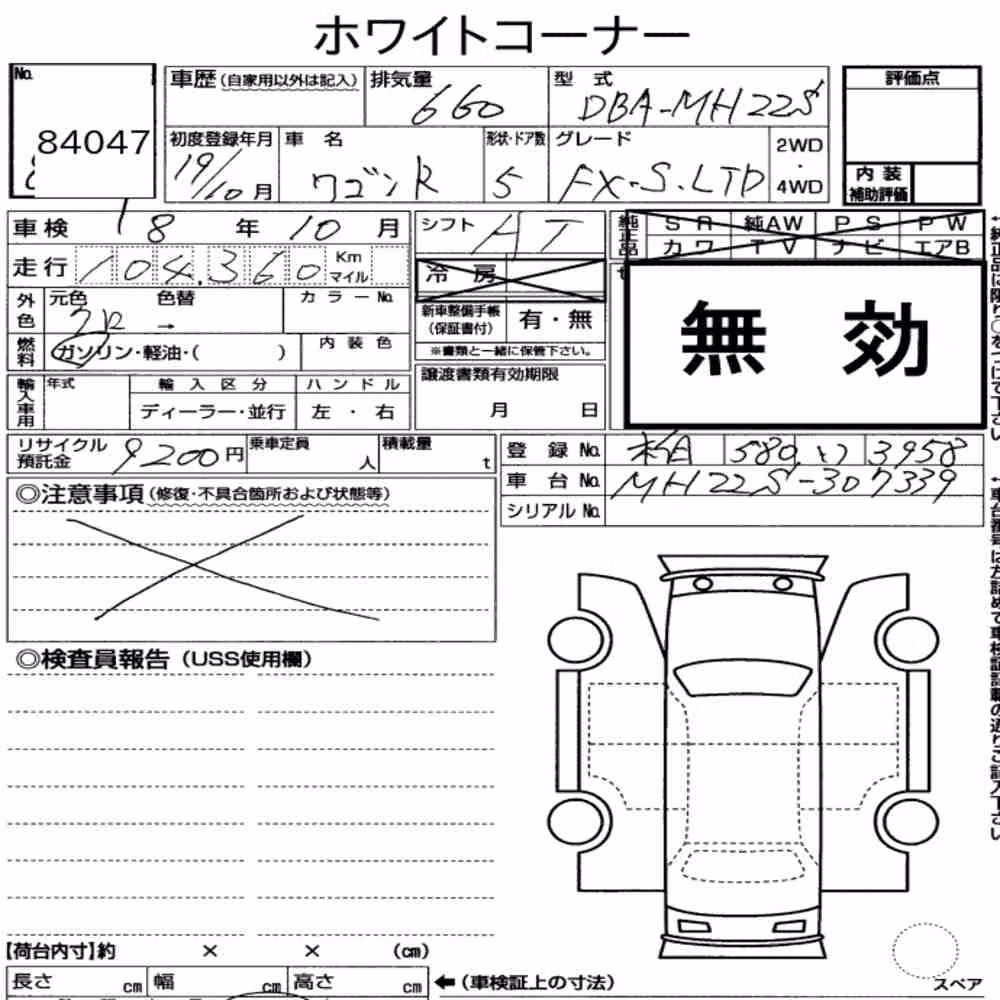 ホワイトコーナー
No. 84047
車歴(自家用以外は記入)
排気量 660
型式 DBA-MH22S
評価点
初度登録年月 19/10月
車名 ワゴンR
形状・ドア数 5
グレード FX-S.LTD
2WD・4WD
内装補助評価
車検 18年10月
シフト AT
純正品 SR 純AW PS PW
カワ TV ナビ エアB
走行 104,360 Km マイル
冷房
外色 元色 色替 → カラーNo.
新車整備手帳(保証書付) 有・無
※書類と一緒に保管下さい。
無効
燃料 ガソリン・軽油・( ) 内装色
譲渡書類有効期限
月 日
輸入車用 年式 輸入区分 ハンドル
ディーラー・並行 左・右
リサイクル預託金 9200円
乗車定員 人
積載量 t
登録No. 580 3958
車台No. MH22S-307339
シリアルNo.
◎注意事項(修復・不具合箇所および状態等)
◎検査員報告(USS使用欄)
【荷台内寸】約 × × (cm)
長さ cm 幅 cm 高さ cm
←(車検証上の寸法)
スペア